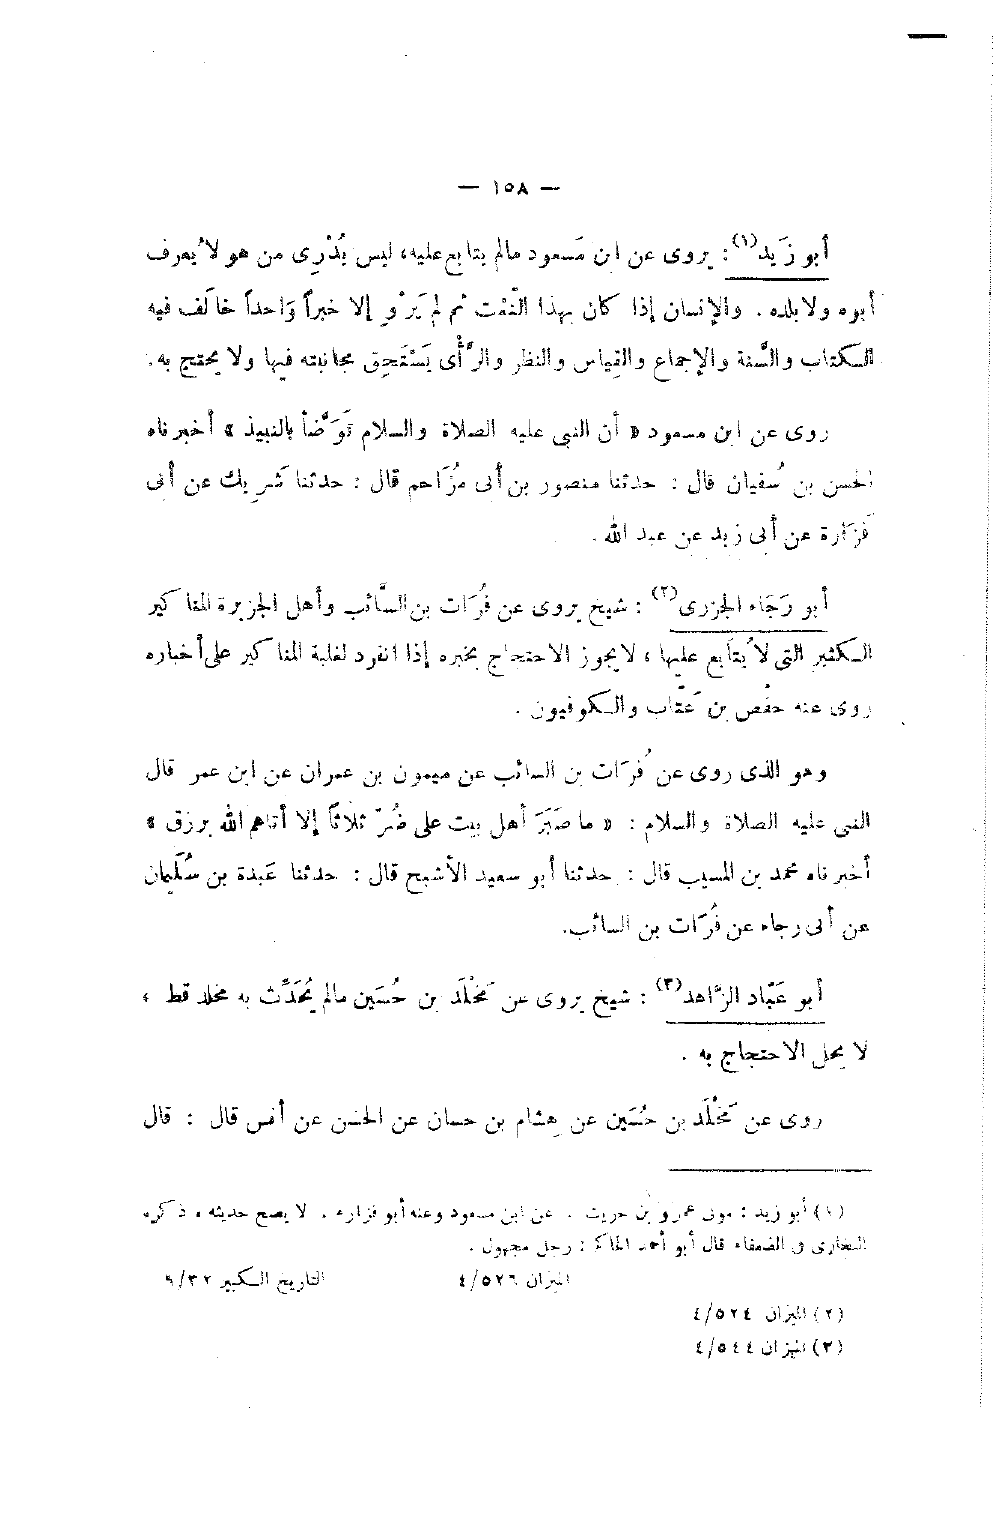 — ١٥٨ —
أبو زَيد(١) : يروى عن ابن مَسعود مالم يتابع عليه، ليس يُدْرِى من هو لا يُعرف
أبوه ولا بلده . والإنسان إذا كان بهذا النَّعْت ثم لم يَرْوِ إلا خبراً وَاحداً خالَف فيه
الكتاب والسُّنة والإجماع والقِياس والنظر والرَّأْى يَسْتَحِق مجانبته فيها ولا يحتج به .
روى عن ابن مسعود « أن النبى عليه الصلاة والسلام تَوَضَّأ بالنبيذ » أخبرناه
الحسن بن سُفيان قال : حدثنا منصور بن أبى مُزَاحم قال : حدثنا شَريك عن أبى
فَزَارة عن أبى زيد عن عبد الله .
أبو رَجَاء الجزرى(٢) : شيخ يروى عن فُرَات بن السَّائب وأهل الجزيرة المناكير
الكثير التى لا يُتَابع عليها ، لا يجوز الاحتجاج بخبره إذا انفرد لغلبة المناكير على أخباره
روى عنه حفْص بن عَتَّاب والكوفيون .
وهو الذى روى عن فُرَات بن السائب عن ميمون بن عمران عن ابن عمر قال
النبى عليه الصلاة والسلام : « ما صَبَرَ أهل بيت على ضُرّ ثلاثاً إلا أتاهم الله برزق »
أخبرناه محمد بن المسيب قال : حدثنا أبو سعيد الأشج قال : حدثنا عَبدة بن سُلَيمان
عن أبى رجاء عن فُرَات بن السائب .
أبو عَبَّاد الزَّاهد(٣) : شيخ يروى عن مَخْلَد بن حُسَين مالم يُحَدِّث به مخلد قط ،
لا يحل الاحتجاج به .
روى عن مَخْلَد بن حُسَين عن هشام بن حسان عن الحسن عن أنس قال : قال
(١) أبو زيد : مولى عمرو بن حريث . عن ابن مسعود وعنه أبو فزارة . لا يصح حديثه ، ذكره
البخارى فى الضعفاء قال أبو أحمد الحاكم : رجل مجهول .
الميزان ٤/٥٢٦ التاريخ الكبير ٩/٣٢
(٢) الميزان ٤/٥٢٤
(٣) الميزان ٤/٥٤٤